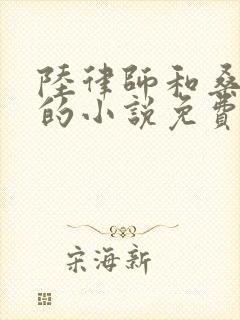 陸律師和桑
的小說免費
宋海新